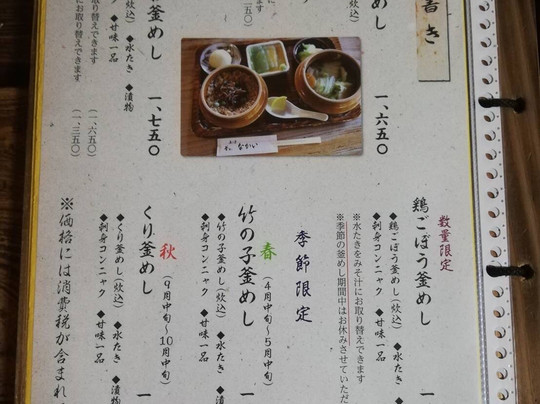 書き
めし
一、六五〇
炊込) ◆水たき ◆漬物
◆甘味一品
にお取り替えできます
釜めし
一、七五〇
炊込) ◆水たき ◆漬物
◆甘味一品
取り替えできます
(一、六五〇)
にお取り替えできます
(一、三五〇)
なかい
数量限定
鶏ごぼう釜めし
一
◆鶏ごぼう釜めし(炊込) ◆水た
◆刺身コンニャク ◆甘味一品
※水たきをみそ汁にお取り替えできます
※季節の釜めし期間中はお休みさせていただ
季節限定
春
(4月中旬〜5月中旬)
竹の子釜めし
一
◆竹の子釜めし(炊込) ◆水たき ◆
◆刺身コンニャク ◆甘味一品
秋
(9月中旬〜10月中旬)
くり釜めし
一
◆くり釜めし(炊込) ◆水たき ◆漬物
◆刺身コンニャク ◆甘味一品
※価格には消費税が含まれ